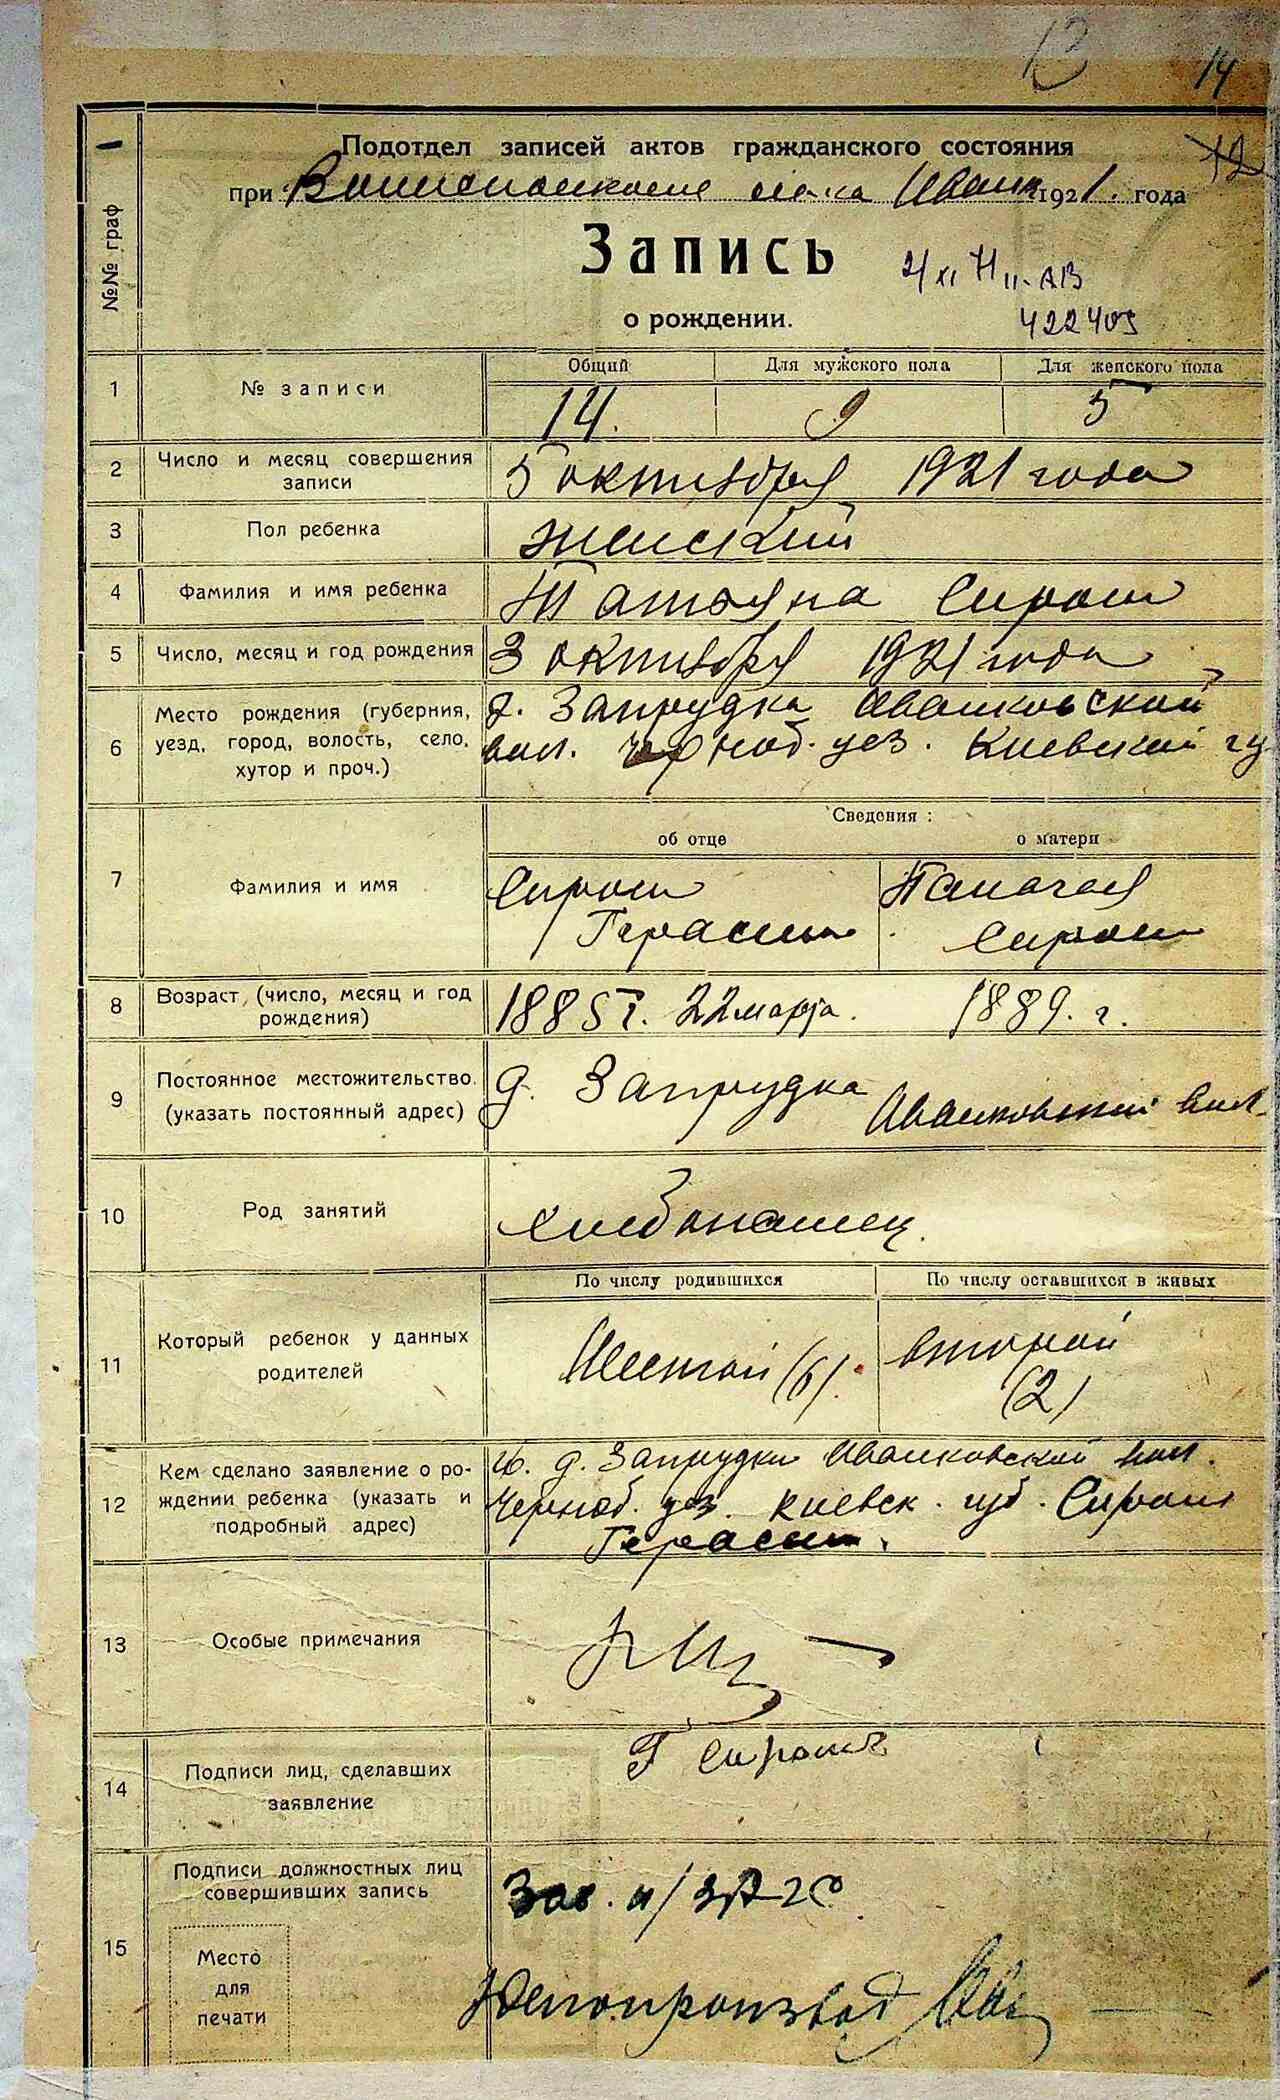 13
14
12
Подотдел записей актов гражданского состояния
при м. Иванк 1921. года
№№ граф
Запись
о рождении.
422405
Общий Для мужского пола Для женского пола
1 № записи 14. 9 5
2 Число и месяц совершения записи 5 октября 1921 года
3 Пол ребенка женский
4 Фамилия и имя ребенка Татьяна Сирош
5 Число, месяц и год рождения 3 октября 1921 года
6 Место рождения (губерния, уезд, город, волость, село, хутор и проч.)
д. Запрудка Иванковской
вол. Черноб. уез. Киевской гу
Сведения:
об отце о матери
7 Фамилия и имя
Сирош
Герасим
Сирош
8 Возраст (число, месяц и год рождения) 1885 г. 22 марта. 1889. г.
9 Постоянное местожительство (указать постоянный адрес)
д. Запрудка
Иванковской вол.
10 Род занятий
По числу родившихся По числу оставшихся в живых
11 Который ребенок у данных родителей
Шестой (6). второй
(2)
12 Кем сделано заявление о рождении ребенка (указать и подробный адрес)
д. Запрудки Иванковской вол.
Черноб. уез. Киевск. губ. Сирош
Герасим.
13 Особые примечания
14 Подписи лиц, сделавших заявление
Г Сирош
15 Подписи должностных лиц совершивших запись
Зав. п/ ЗАГС
Место
для
печати
Делопроизвод